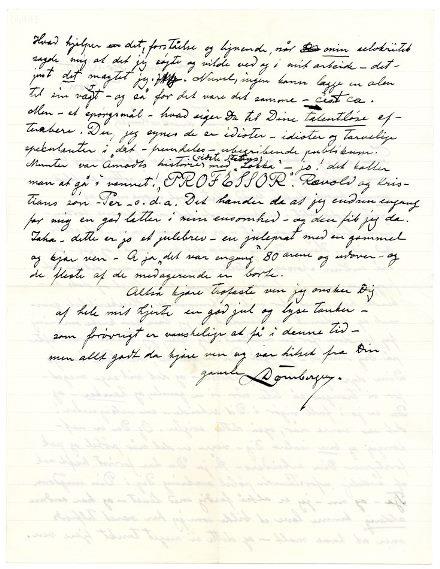 Hvad hjelper det, forståelse og lignende, når min selvkritik
sagde mig at det jeg søgte og vilde ved og i mit arbeide – det –
just det magtet jeg Navel, ingen kann lægge en alen
til sin vægt – og så får det være det samme – c'est ca.
Men – et spørgsmål – hvad siger Du til Dine talentløse ef-
terabere. Du, jeg synes de er idioter – idioter og tarvelige
spekulanter i det – fremdeles – ubegribende publikum.
Munter var historie med – jo! det kalder
man at gå i vannet! "PROFESSOR". Revold og Kris-
tians søn – Per – o.s.a. Det hænder da at jeg endnu engang
får mig en god latter i min ensomhed – og den fik jeg da.
Jaha – dette er jo et julebrev – en juleprat med en gammel
og kjær ven – A ja "det var engang" 80 årene og udover – og
de fleste af de medagerende er borte.
Altså kjære trofaste ven jeg ønsker Dig
af hele mit hjerte en god jul og lyse tanker –
som forøvrigt er vanskelige at få i denne tid –
men allt godt da kjære ven og vær hilset fra Din
gamle